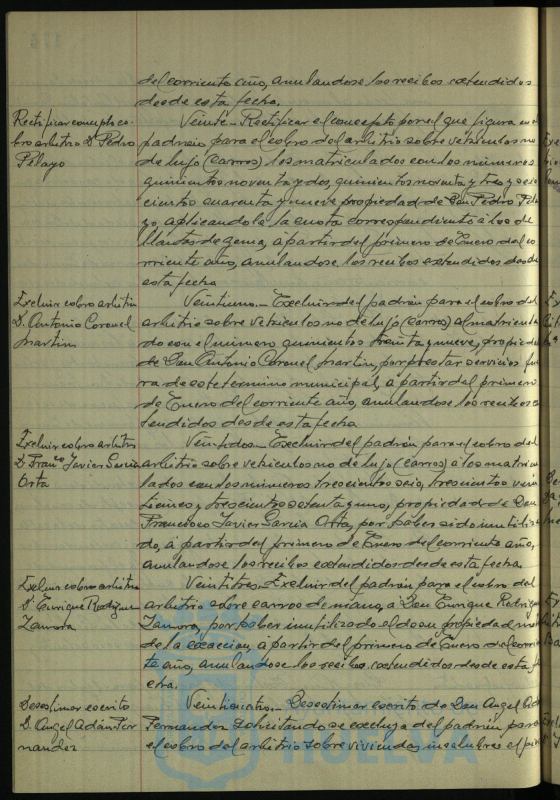 del corriente año, anulandose los recibos extendidos
desde esta fecha.
Rectificar concepto co-
bro arbitrio D. Pedro
Pelayo
Veinte.- Rectificar el concepto por el que figura en el
padrón para el cobro del arbitrio sobre vehiculos no
de lujo (carros) los matriculados con los números
quinientos noventa y dos, quinientos noventa y tres y seis
cientos cuarenta y nueve propiedad de Don Pedro Pela
yo aplicandole la cuota correspondiente á los de
llantas de goma, á partir del primero de Enero del co
rriente año, anulandose los recibos extendidos desde
esta fecha
Excluir cobro arbitrio
D. Antonio Coronel
Martin
Veintiuno.- Excluir del padrón para el cobro del
arbitrio sobre vehiculos no de lujo (carros) al matricula
do con el número quinientos treinta y nueve, propiedad
de Don Antonio Coronel Martin, por prestar servicios fue
ra de este termino municipal, á partir del primero
de Enero del corriente año, anulandose los recibos ex
tendidos desde esta fecha
Excluir cobro arbitrio
D. Franco Javier Garcia
Orta
Veintidos.- Excluir del padrón para el cobro del
arbitrio sobre vehiculos no de lujo (carros) á los matricu
lados con los números trescientos seis, trescientos vein
ticinco, y trescientos setenta y uno, propiedad de Don
Francisco Javier Garcia Orta, por haber sido inutiliza
do, á partir del primero de Enero del corriente año,
anulandose los recibos extendidos desde esta fecha.
Excluir cobro arbitrio
D. Enrique Rodriguez
Zamora
Veintitres.- Excluir del padrón para el cobro del
arbitrio sobre carros de mano, á Don Enrique Rodriguez
Zamora, por haber inutilizado el de su propiedad
de la exaccion, á partir del primero de Enero del corrien
te año, anulandose los recibos extendidos desde esta fe
cha.
Desestimar escrito
D. Angel Adán Fer
nandez
Veinticuatro.- Desestimar escrito de Don Angel Adán
Fernandez solicitando se excluya del padrón para
el cobro del arbitrio sobre viviendas insalubres el
HUELVA